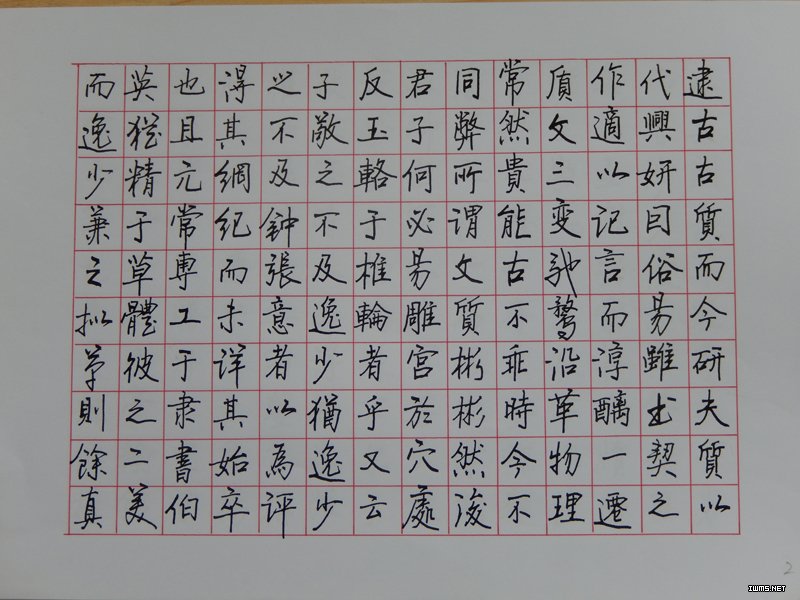 逮古古質而今研夫質以
代興妍因俗易雖书契之
作適以记言而淳醨一遷
质文三变驰鹜沿革物理
常然貴能古不乖時今不
同弊所谓文質彬彬然後
君子何必易雕宫於穴處
反玉輅于椎輪者乎又云
子敬之不及逸少猶逸少
之不及钟張意者以為评
得其綱纪而未详其始卒
也且元常專工于隶書伯
英猶精于草體彼之二美
而逸少兼之拟草則餘真
2
IWMS.NET